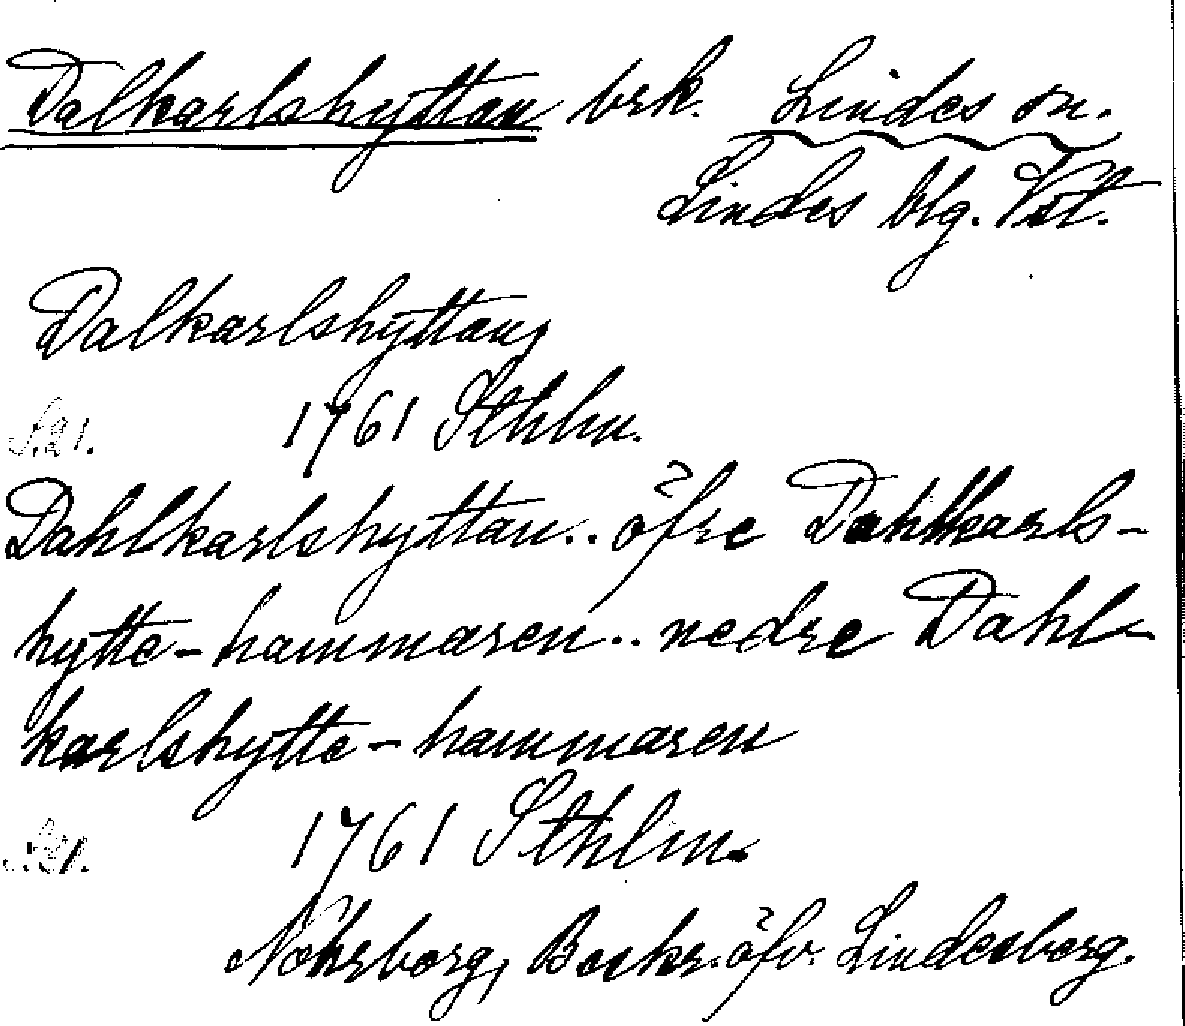 Dalkarlshyttan brk. Lindes sn.
Lindes blg. Vstl.
Dalkarlshyttan,
S. 21. 1761 Sthlm.
Dahlkarlshyttan.. öfre Dahlkarls-
hytte-hammaren.. nedre Dahl-
karlshytte-hammaren
S. 21. 1761 Sthlm.
Nohrborg, Beskr. öfv. Lindesborg.